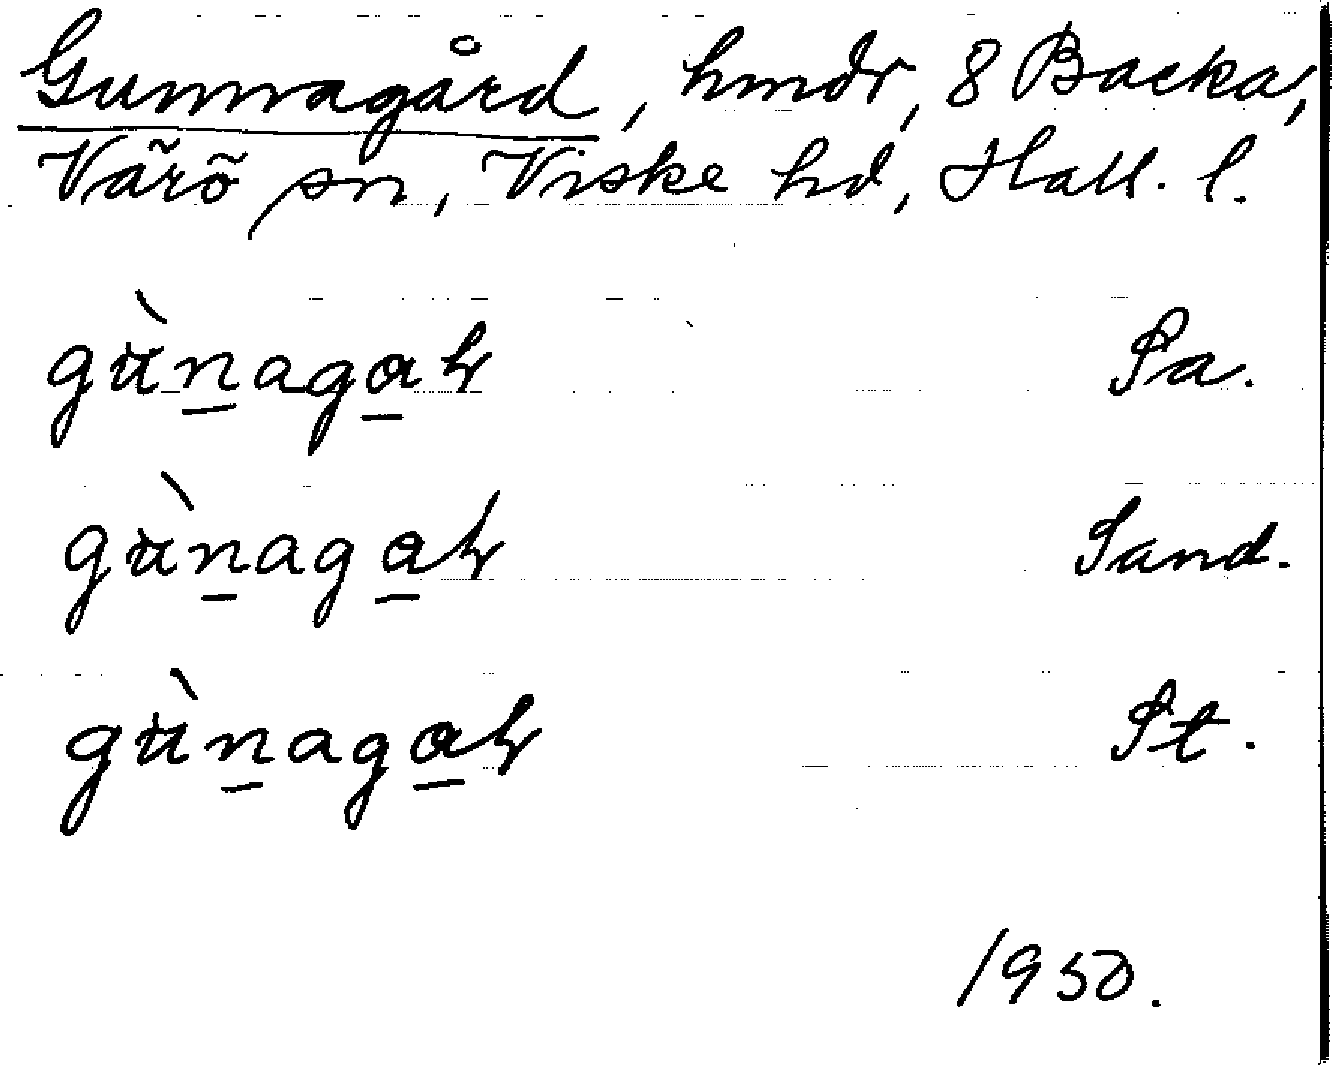 Gunnagård, hmdr, 8 Backa,
Värö sn, Viske hd, Hall. l.
gùn̲aga̲r Pa.
gùn̲aga̲r Sand.
gùn̲aga̲r St.
1950.